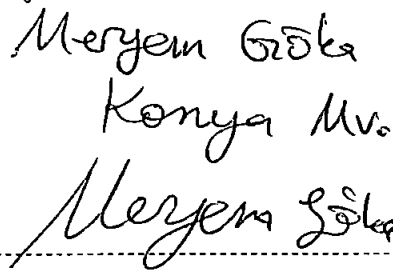 Meryem Göka
Konya Mv.
Meryem Göka